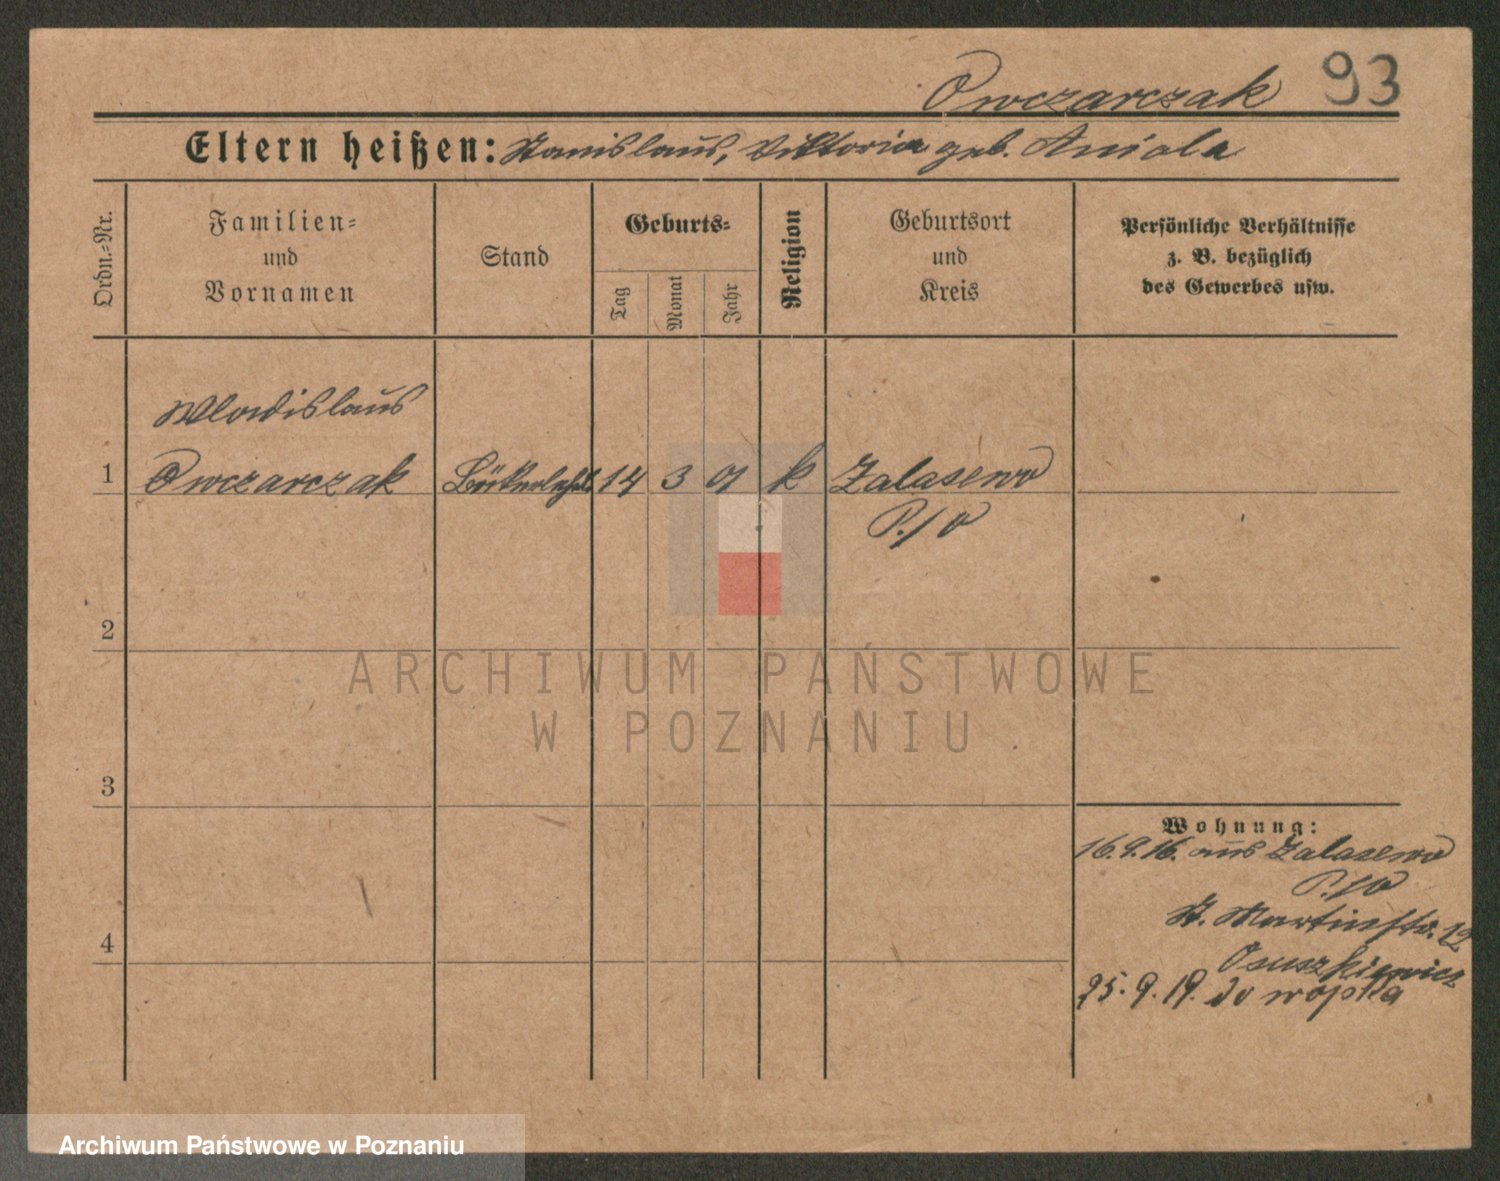 Owczarczak 93
Eltern heißen: Stanislaus, Viktoria geb. Aniola
Ordn.=Nr.
Familien=
und
Vornamen
Stand
Geburts=
Tag
Monat
Jahr
Religion
Geburtsort
und
Kreis
Persönliche Verhältnisse
z. B. bezüglich
des Gewerbes usw.
Wladislaus
1 Owczarczak 14 3 01 k Zalasewo
P./O
2
ARCHIWUM PAŃSTWOWE
W POZNANIU
3
Wohnung:
16.9.16. aus Zalasewo
P./O
St. Martinstr. 12
4
Osuszkiewicz
25.9.19. do wojska
Archiwum Państwowe w Poznaniu